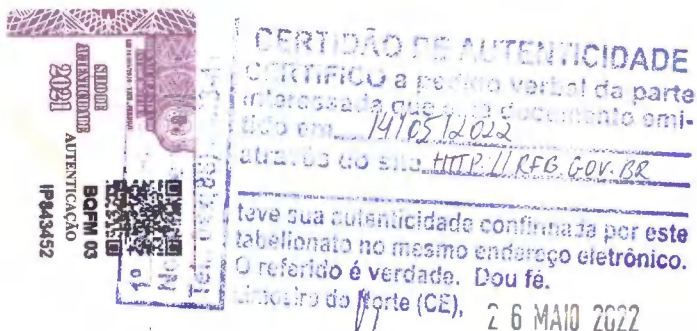 SELO DE
AUTENTICIDADE
2021
AUTENTICAÇÃO
BQFM 03
IP843452
CERTIDÃO DE AUTENTICIDADE
CERTIFICO a pedido verbal da parte
interessada que este documento emi-
tido em 14/05/2022
através do site HTTP://RFB.GOV.BR
teve sua autenticidade confirmada por este
tabelionato no mesmo endereço eletrônico.
O referido é verdade. Dou fé.
Limoeiro do Norte (CE), 26 MAIO 2022
1º